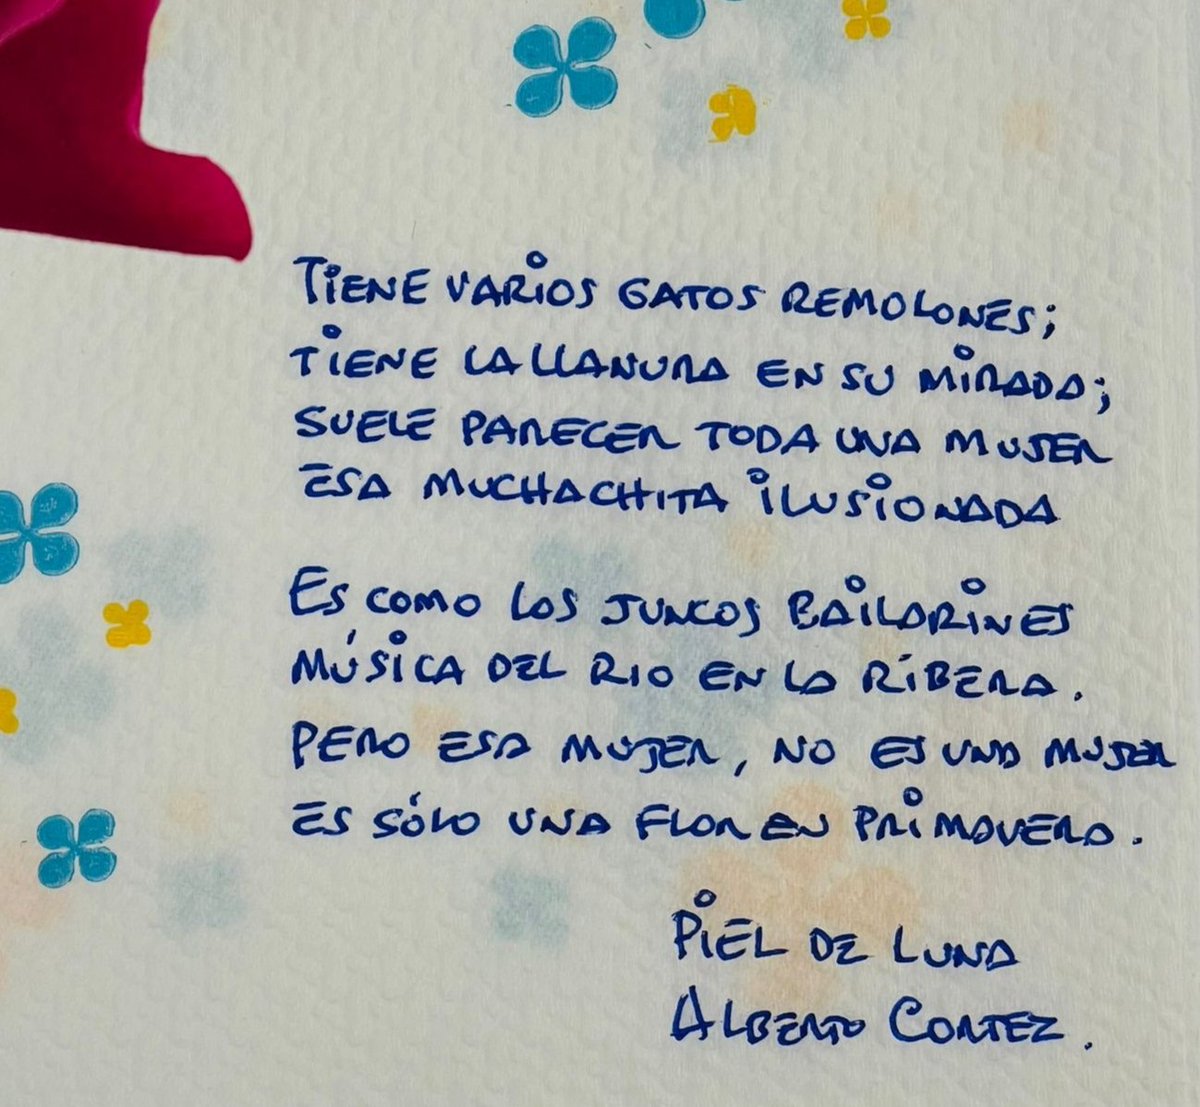 TiENE VARiOS GATOS REMOLONES;
TiENE LA LLANURA EN SU MiRADA;
SUELE PARECER TODA UNA MUJER
ESA MUCHACHITA iLUSiONADA
Es COMO LOS JUNCOS BAiLARiNES
MÚSiCA DEL RIO EN LA RÍBERA.
PERO ESA MUJER, NO ES UNA MUJER
ES SÓLO UNA FLOR EN PRiMAVERA.
PiEL DE LUNA
ALBERTO CORTEZ.